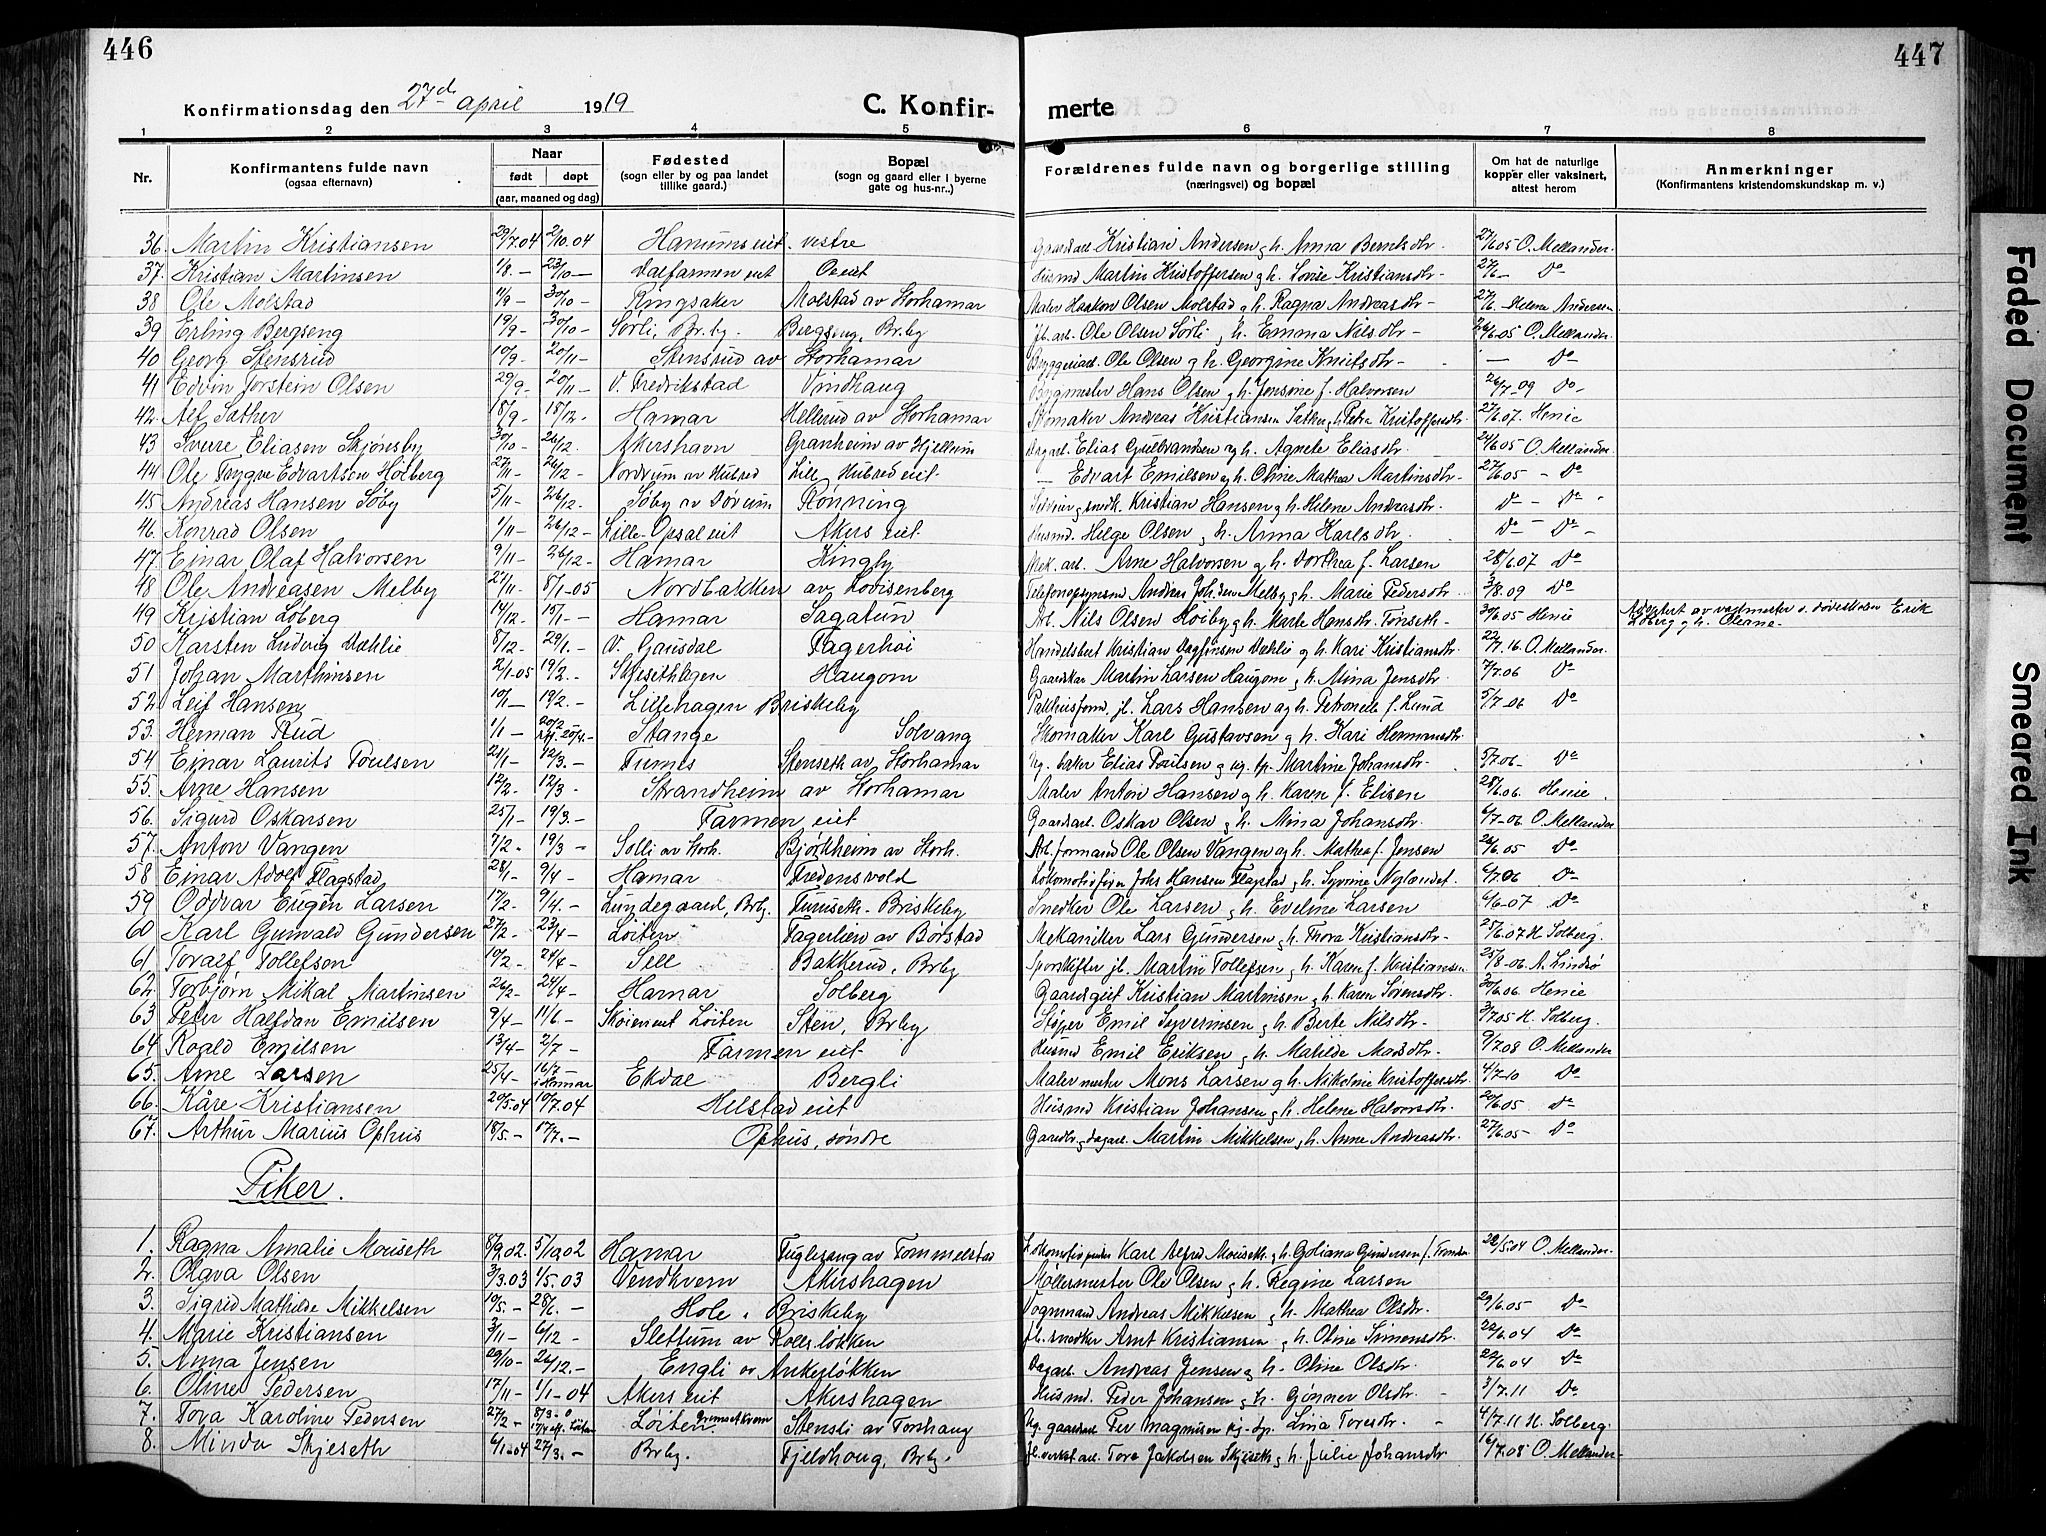 446
447
Konfirmationsdag den 27d april 1919
C. Konfir-
merte
1 2 3 4 5 6 7 8
Nr.
Konfirmantens fulde navn
(ogsaa efternavn)
Naar
født døpt
(aar, maaned og dag)
Fødested
(sogn eller by og paa landet
tillike gaard.)
Bopæl
(sogn og gaard eller i byerne
gate og hus-nr..)
Forældrenes fulde navn og borgerlige stilling
(næringsvei) og bopæl
Om hat de naturlige
kopper eller vaksinert,
attest herom
Anmerkninger
(Konfirmantens kristendomskundskap m. v.)
36. Martin Kristiansen 29/7.04 2/10.04 Hanums eiet. vestre Kristian Andersen g h. Anna Berntsdtr. 27/6.05 O. Mellander.
37. Kristian Martinsen 1/8 - 23/10 - Oeiet Martin Kristoffersen g h. Lovise Kristiansdtr- 27/6- Do
38 Ole Molstad 11/9 - 30/10 - Ringsaker Molstad av Storhamar Maler Haakon Olsen Molstad g h. Ragna Andreasdtr- 27/6. - Helene Andersen
39 Erling Bergseng 19/9 - 30/10 - Sørli, Br.by. Bergseng, Br.by Ole Olsen Sørli g h. Emma Nilsdtr- 26/6.05 O. Mellander.
40 Georg Stensrud 10/9. 20/11 - Stensrud av Storhamar Ole Olsen g h. Georgine Knutsdtr- - Do
41 Edvin Torstein Olsen 29/9 - 20/11 - V. Fredrikstad Vindhaug Bygmester Hans Olsen g h. Jensine f. Halvorsen 26/7.09 Do-
42. Alf Sæther 18/9 - 18/12. - Hamar Mellerud av Storhamar Skomaker Andreas Kristiansen Sæther g h. Petra Kristoffersdtr. 27/6.07. Henie
43 Sverre Eliasen Skjønsby 30/10 - 26/12. Akershavn Granheim av Hjellum Elias Gulbrandsen g h. Agnete Eliasdtr. 24/6.05 O. Mellander.
44 Ole Trygve Edvartsen Høiberg 27/11 - 26/12 - Nordvum av Hubred Lille Hubred eiet. - Edvart Emilsen g h. Oline Mathea Martinsdtr- 27/6.05 - Do
45 Andreas Hansen Søby 5/11 - 26/12. Søby av Dørum Rønning Kristian Hansen g h. Helene Andreasdtr. Do - Do
46. Konrad Olsen 1/11 - 26/12 - Lille Opsal eiet Akers eiet. Husmd. Helge Olsen g h. Anna Karlsdtr. Do - Do -
47. Einar Olaf Halvorsen 9/11 - 26/12 - Hamar Kingby Mek. arb. Arne Halvorsen g h. Dorthea f. Larsen 28/6.07 Do
48 Ole Andreasen Melby 27/11 - 8/1-05 Nordbakken av Lovisenberg Andreas Johnsen Melby g h. Marie Pedersdtr. 3/8.09 Do
49 Kristian Løberg 14/12. 15/1 - Hamar Sagatun Arb. Nils Olsen Høiby g h. Marte Hansdtr. Tønseth- 30/6.05 Henie Adoptert av vagtmester v. døveskolen Erik
Løberg g h. Oleane-
50 Karsten Ludvig Dæhlie 8/12 - 29/1. - V. Gausdal Fagerhøi Handelsbet Kristian Dagfinsen Dæhli g h. Kari Kristiansdtr. 22/7.16. O. Mellander.
51 Johan Marthinsen 2/1-05 19/2. - Haugom Gaardskar Martin Larsen Haugom g h. Mina Jensdtr. 7/7.06 Do
52 Leif Hansen 10/1 - 19/2. - Lillehagen Briskeby Pakhusform. jb. Lars Hansen g h. Petronele f. Lund 5/7-06 Do
53. Herman Ruud 1/1 - 20/2 20/4.- Stange Solvang Skomaker Karl Gustavsen g h. Kari Hermansdtr.
54 Einar Laurits Poulsen 21/1 - 12/3. - Furnes Stenseth av Storhamar Ug. baker Elias Poulsen g ug. tp. Martine Johansdtr- 5/7.06- Do
55. Arne Hansen 12/2. 12/3 - Strandheim av Storhamar Maler Anton Hansen g h. Karen f. Elisen 28/6.06. Henie
56. Sigurd Oskarsen 25/1 - 19/3. - Farmen eiet Gaardarb. Oskar Olsen g h. Mina Johansdtr. 6/7-06 O. Mellander
57. Anton Vangen 7/2 - 19/3 - Solli av Storh. Bjørkheim av Storh. Arb. formand Ole Olsen Vangen g h. Mathea f. Jensen 26/6.05 Do
58 Einar Adolf Flagstad 28/1 - 9/4 - Hamar Fredensvold Lokomotivfører Johs Hansen Flagstad g h. Syverine Nylændet. 6/7.06 Do-
59 Oddvar Eugen Larsen 17/2. 9/4. - Lundegaard, Brby. Furuseth - Briskeby Snedker Ole Larsen g h. Eveline Larsen 6/6-07 Do
60 Karl Gunvald Gundersen 27/2. 23/4 - Løiten Fagerlien av Børstad Mekaniker Lars Gundersen g h. Thora Kristiansdtr- 25/6.07 H. Solberg.
61 Toralf Tollefsen 10/2 - 24/4 - Sell Bakkerud, Brby Sporskifter jb. Martin Tollefsen g h. Karen f. Kristiansen 25/8-06. A. Lindsø
62. Torbjørn Mikal Martinsen 26/2- 24/4- Hamar Solberg Gaardsgut Kristian Martinsen g h. Karen Sørensdtr. 30/6.06 Henie
63 Peter Halfdan Emilsen 9/4 - 11/6 - Skøien eiet Løiten Steen, Brby Støper Emil Syverinsen g h. Berte Nilsdtr. 3/7.05 H. Solberg.
64 Roald Emilsen 13/4 - 2/7 - Farmen eiet Husmd Emil Eriksen g h. Mathilde Madsdtr. 9/7.08 O. Mellander
65. Arne Larsen 25/4 - 16/7 - i Hamar Ekdal Bergli Malermester Mons Larsen g h. Nikoline Kristoffersdtr. 4/7-10 Do
66. Kåre Kristiansen 20/5.04 10/7.04 Helstad eiet Husmd Kristian Johansen g h. Helene Halvorsdtr. 20/6.05 Do
67. Arthur Marius Ophus 18/5. - 17/7. - Ophus, søndre Gaardbr. g dagarb. Martin Mikkelsen g h. Anne Andreasdtr. 27/6.05 - Do
Piker.
1. Ragna Amalie Mouseth 8/9.02. 5/10.02 Hamar Fuglesang av Tommelstad Karl Alfred Mouseth g h. Goliana Gundersen 28/5.04 O. Mellander.
2. Olava Olsen 3/3.03 1/5.03 Vendkvern Akershagen Møllermester Ole Olsen g h. Regine Larsen
3. Sigrid Mathilde Mikkelsen 19/5. - 28/6. - Hole. Briskeby Vognmand Andreas Mikkelsen g h. Mathea Olsdtr. 29/6.05 Do
4. Marie Kristiansen 3/11 - 6/12 - Slettum av Rollsløkken Jb. snedker Arnt Kristiansen g h. Oline Simensdtr. 22/6.04 Do
5. Anna Jensen 29/10 - 26/12. - Engli av Ankerløkken Dagarb. Andreas Jensen g h. Oline Olsdtr. 29/6.04 Do
6. Oline Pedersen 17/11 - 1/1-04 Akers eiet Akershagen Husmd. Peder Johansen g h. Gønner Olsdtr. - 3/7.11 Do
7. Tora Karoline Pedersen 27/2 - 8/3- Løiten. Stensli av Torshaug Ug. gaardarb Per Magnusen Lina Toresdtr. - 4/7.11 H. Solberg.
8. Minda Skjeseth 6/1-04 27/3. - Brby. Fjeldhoug, Brby. Tore Jakobsen Skjeseth g h. Julie Johansdtr 16/7.08 O. Mellander-
Faded Document
Smeared Ink